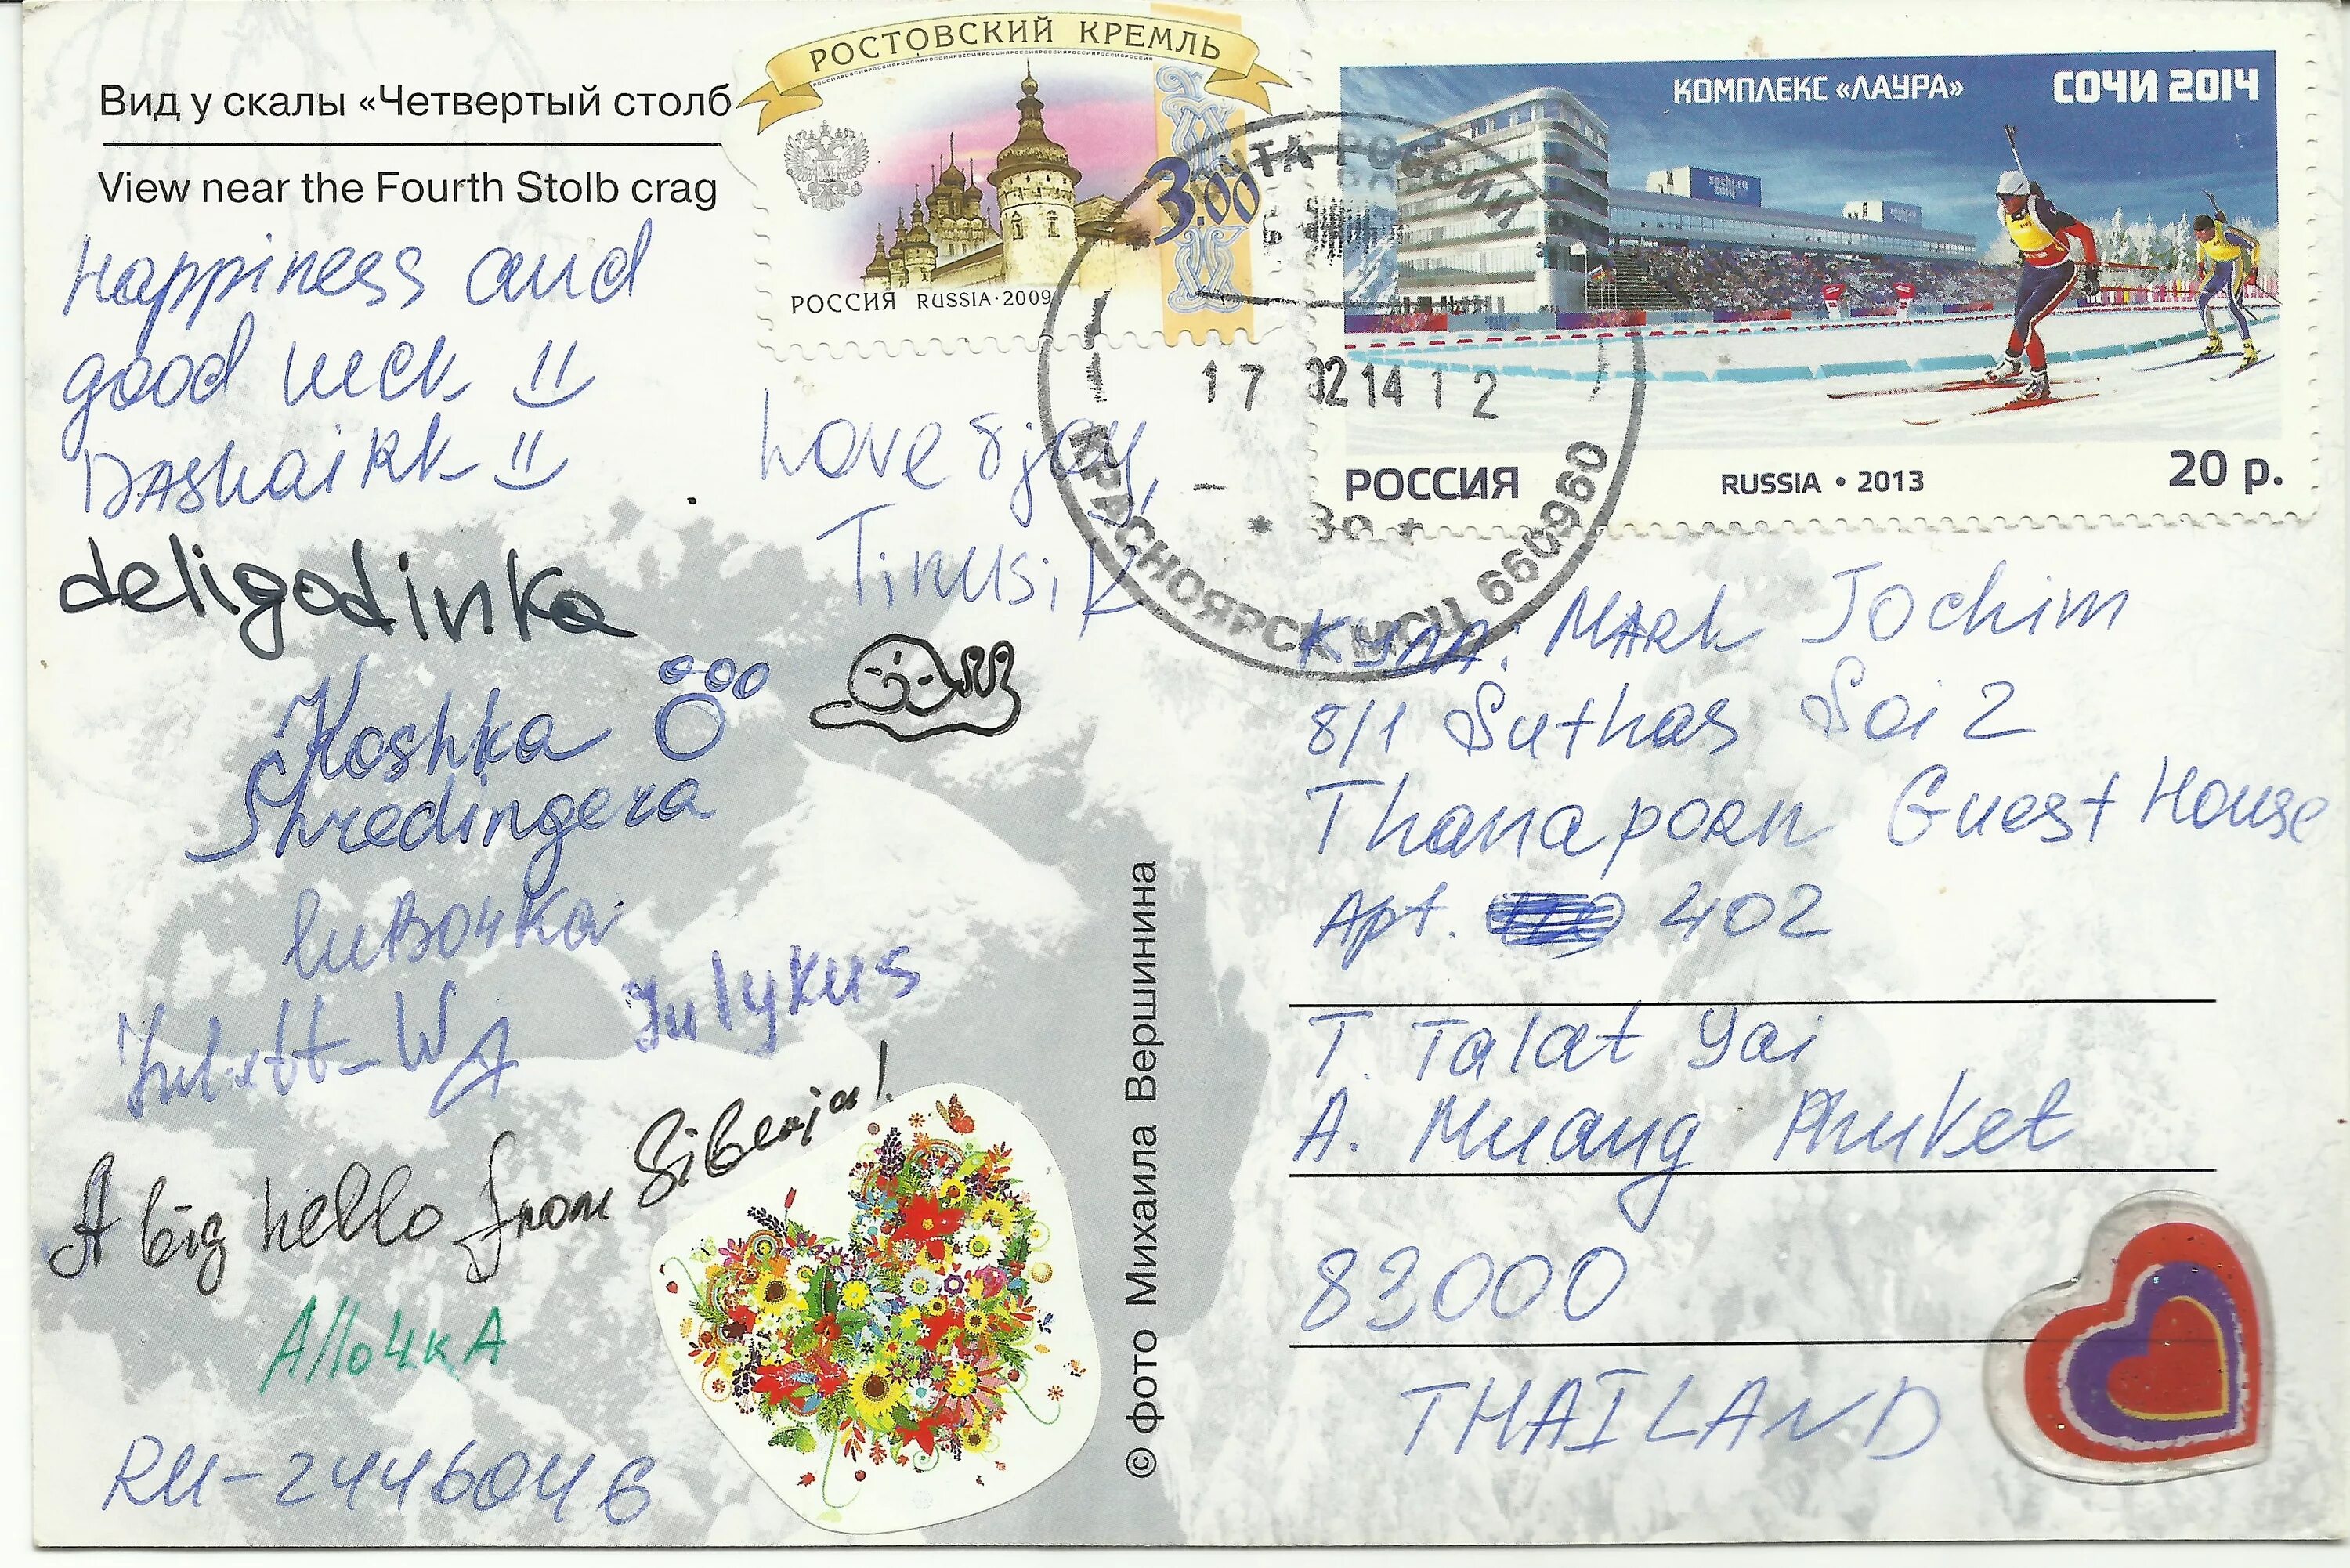 Вид у скалы «Четвертый столб
View near the Fourth Stolb crag
Happiness and
good luck
DAshaiRk
deligodinka
Koshka
Shredingera
luBo4ka
Juliett-WA
Julykus
A big hello from Siberija!
Allo4kA
RU-2446046
Love & joy,
Tinusik
© фото Михаила Вершинина
РОСТОВСКИЙ КРЕМЛЬ
3.00
РОССИЯ RUSSIA·2009
КОМПЛЕКС «ЛАУРА»
СОЧИ 2014
sochi.ru
2014
РОССИЯ
RUSSIA • 2013
20 р.
ПОЧТА РОССИИ
17 02 14 12
КРАСНОЯРСК МСЦ 660960
Mark Jochim
8/1 Suthas Soi 2
Thanaporn Guest House
Apt. 402
T. Talat Yai
A. Muang Phuket
83000
THAILAND